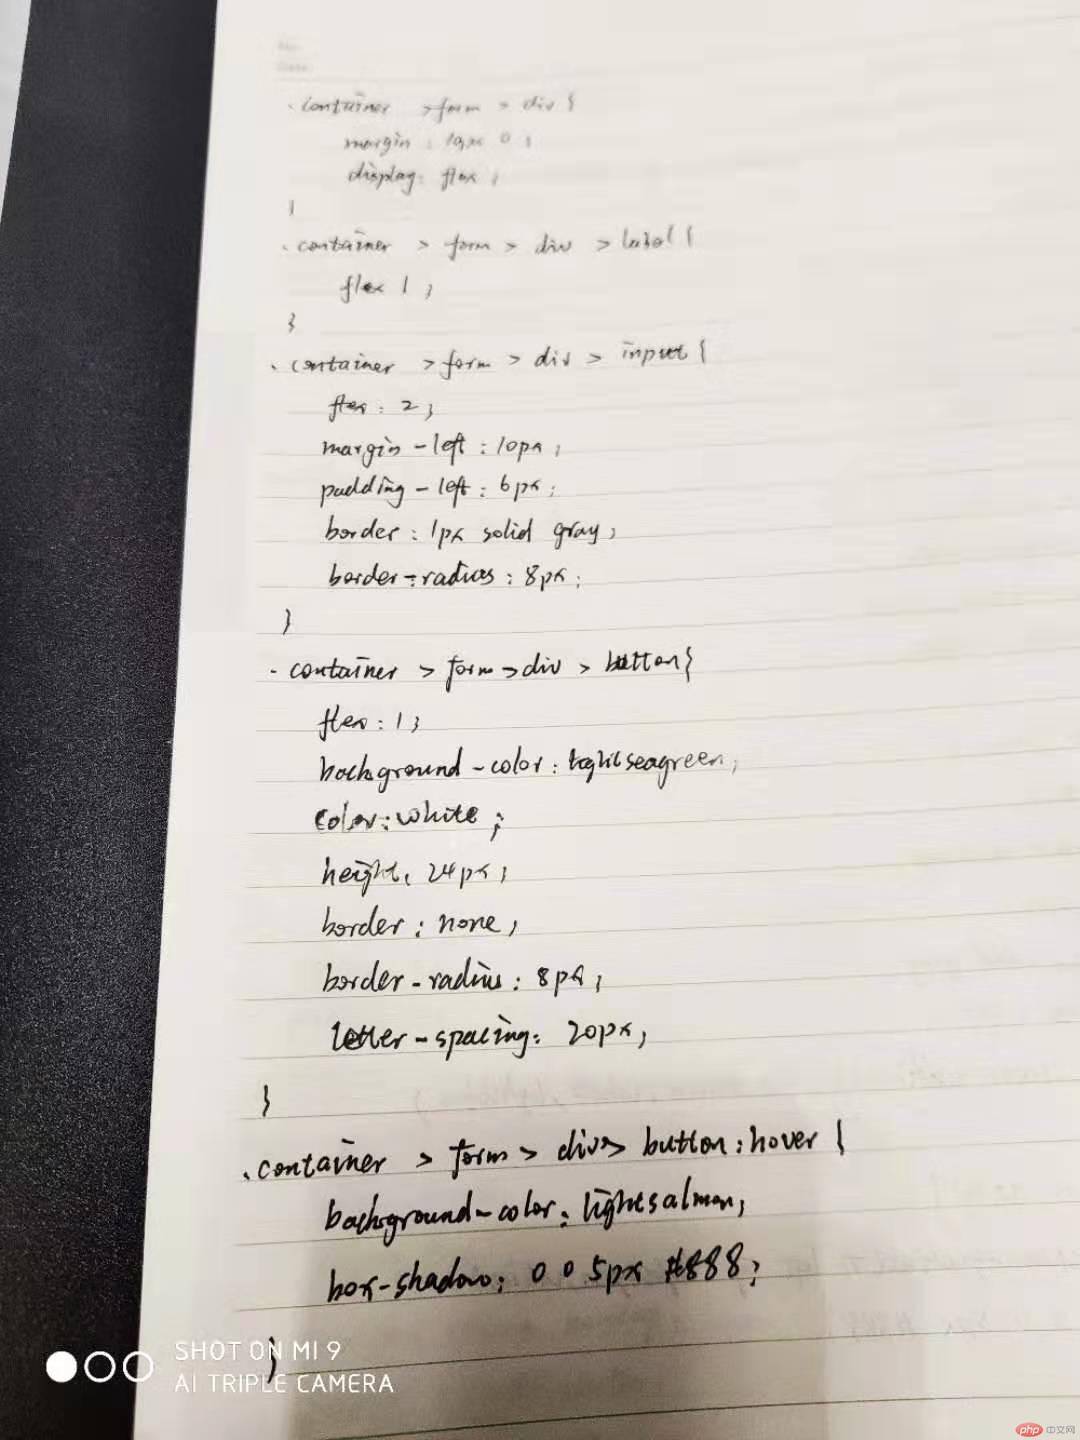 .container > form > div {
margin : 10px 0 ;
display: flex ;
}
.container > form > div > label {
flex 1 ;
}
.container > form > div > input {
flex : 2 ;
margin-left : 10px ;
padding-left : 6px ;
border : 1px solid gray ;
border-radius : 8px ;
}
.container > form > div > button {
flex : 1 ;
background-color : lightseagreen ;
color : white ;
height : 24px ;
border : none ;
border-radius : 8px ;
letter-spacing : 20px ;
}
.container > form > div > button:hover {
background-color : lightsalmon ;
box-shadow : 0 0 5px #888 ;
}
SHOT ON MI 9
AI TRIPLE CAMERA
php 中文网